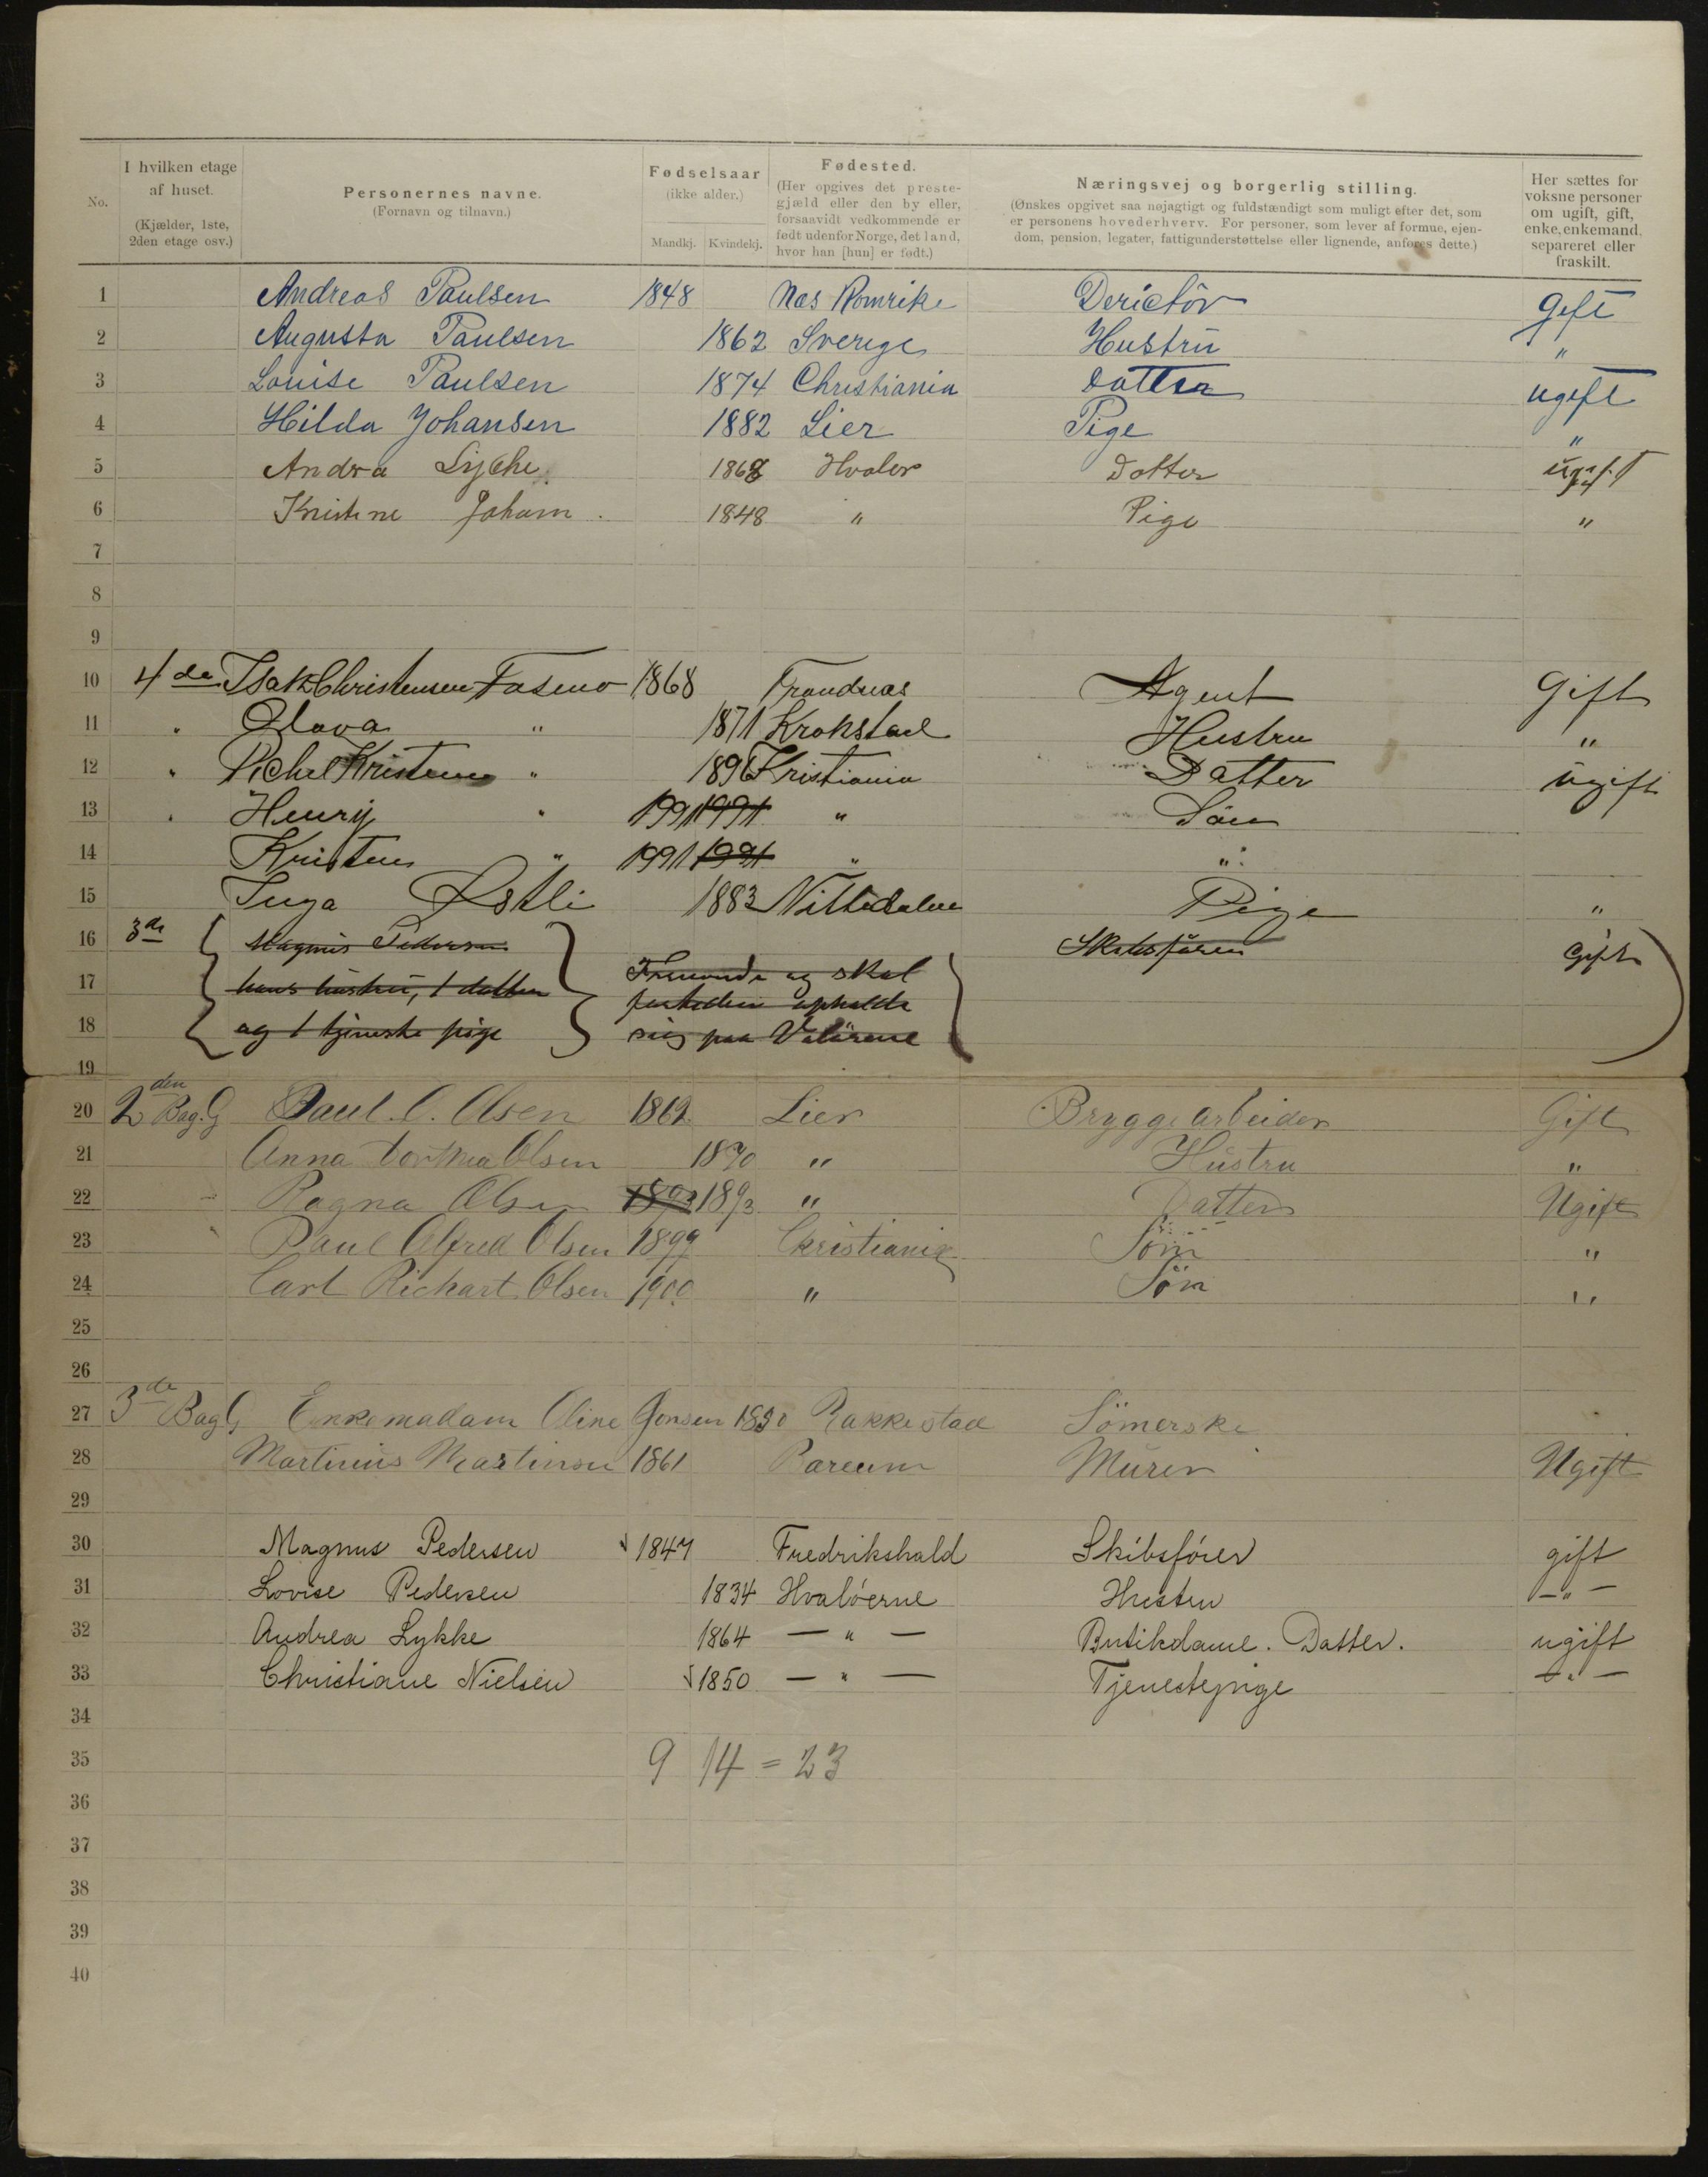 No.
I hvilken etage af huset.
(Kjælder, 1ste, 2den etage osv.)
Personernes navne.
(Fornavn og tilnavn.)
Fødselsaar
(ikke alder.)
Mandkj. Kvindekj.
Fødested.
(Her opgives det preste-
gjæld eller den by eller,
forsaavidt vedkommende er
født udenfor Norge, det land,
hvor han [hun] er født.)
Næringsvej og borgerlig stilling.
(Ønskes opgivet saa nøjagtigt og fuldstændigt som muligt efter det, som
er personens hovederhverv. For personer, som lever af formue, ejen-
dom, pension, legater, fattigunderstøttelse eller lignende, anføres dette.)
Her sættes for
voksne personer
om ugift, gift,
enke, enkemand,
separeret eller
fraskilt.
1 Andreas Paulsen 1848 Nas Romrike Derictör gift
2 Augusta Paulsen 1862 Sverige Hustru "
3 Louise Paulsen 1874 Christiania Datter ugift
4 Hilda Johansen 1882 Lier Pige "
5 Andra Lyche 1868 Hvaler Dotter ugift
6 Kristine Johan 1848 " Pige "
7
8
9
10 4de Isak Christensen Fosmo 1868 Trondnæs Agent Gift
11 " Olava " 1871 Krokstad Hustru "
12 " Kristem " 1896 Kristiania Datter ugift
13 " Henry " 1991 1991 " Sön
14 Kristen " 1991 1991 " "
15 Inga Østli 1883 Nittedalen Pige "
16 3de Magnus Pedersen Skibsförer gift
17 hans hustru, 1 datter og skal
18 og 1 tjeneste pige opholde
sig paa Valörene
19
20 2den Bag.G Paul. O. Olsen 1862 Lier Bryggearbeider Gift
21 Anna Dorthea Olsen 1870 " Hustru "
22 Ragna Olsen 1893 1893 " Datter Ugift
23 Paul Alfred Olsen 1899 Christiania Sön "
24 Carl Richart Olsen 1900 " Sön "
25
26
27 3de Bag G Enkemadam Oline Jonsen 1830 Rakkestad Sömerske
28 Martinius Martinsen 1861 Bareum Murer Ugift
29
30 Magnus Pedersen 1847 Fredrikshald Skibsfórer gift
31 Lovise Pedersen 1834 Hvalóerne Hustru — " —
32 Andrea Lykke 1864 — " — Butikdame. Datter. ugift
33 Christiane Nielsen 1850 — " — Tjenestepige — " —
34
35 9 14 = 23
36
37
38
39
40